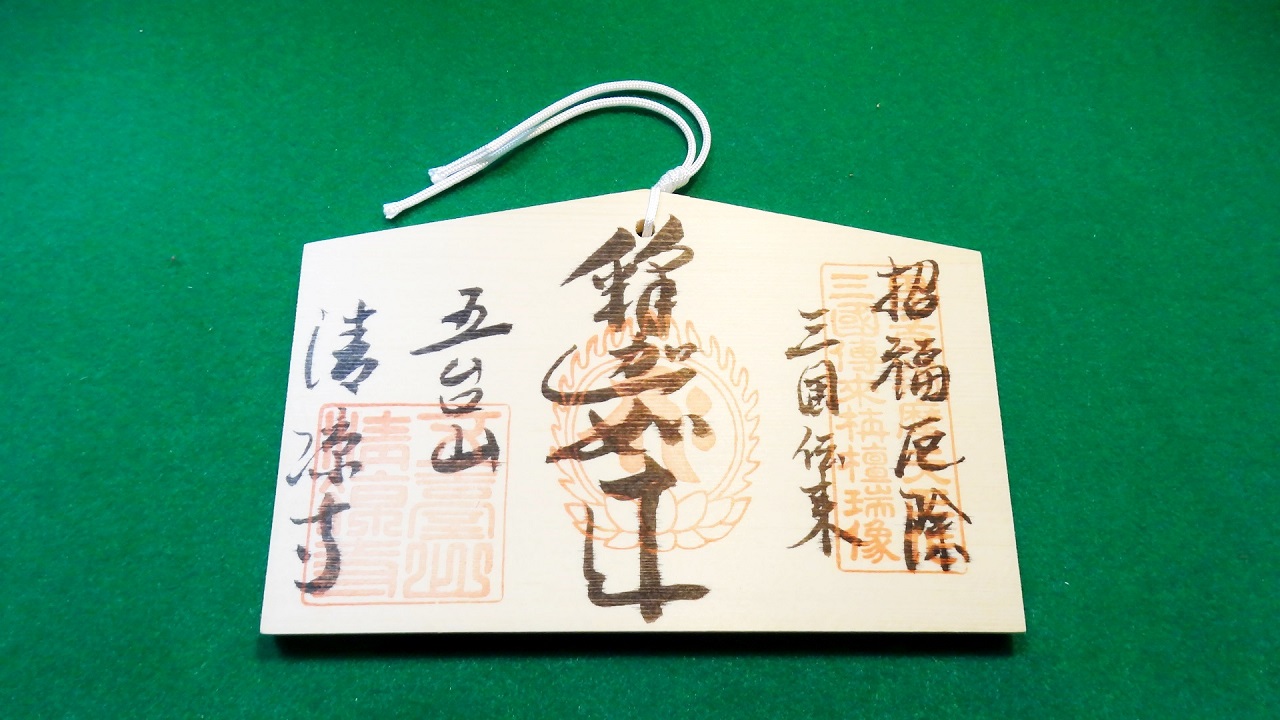 招福厄除
三国伝来
三國傳来栴檀瑞像
釋迦如来
五台山
清凉寺
五臺山
清凉寺